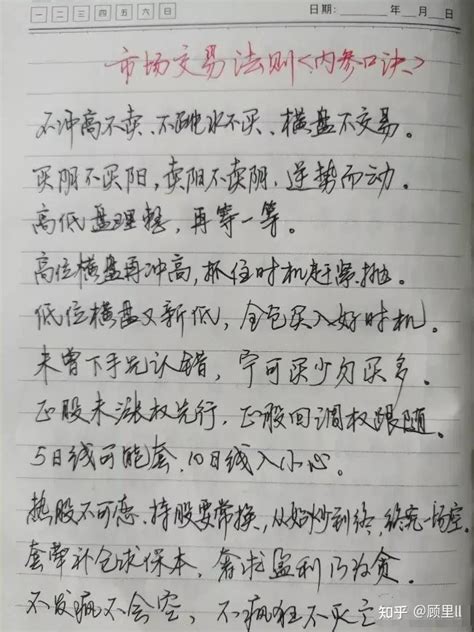 一 二 三 四 五 六 日 日期: 年 月 日
市场交易法则<内参口诀>
不冲高不卖、不跳水不买、横盘不交易。
买阴不买阳,卖阳不卖阴,逆势而动。
高低盘整理,再等一等。
高位横盘再冲高,抓住时机赶紧抛。
低位横盘又新低,全仓买入好时机。
未曾下手先认错,宁可买少勿买多。
正股未涨权先行,正股回调权跟随。
5日线可能套,10日线入小心。
热股不可恋,持股要常换,从始炒到终,终究一场空。
套牢补仓求保本,奢求盈利乃为贪。
不发疯不会空,不疯狂不灭空
知乎 @顾里ll